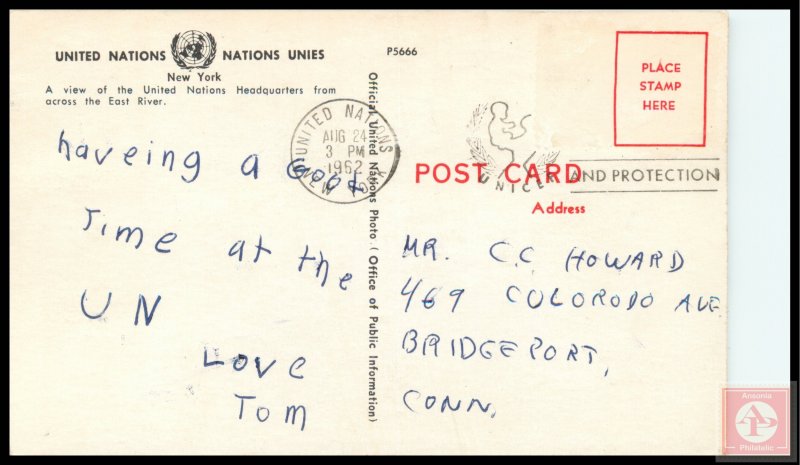 UNITED NATIONS NATIONS UNIES
New York
A view of the United Nations Headquarters from
across the East River.
P5666
PLACE
STAMP
HERE
UNITED NATIONS
AUG 24
3 PM
1962
NEW YORK
UNICEF
AND PROTECTION
POST CARD
Address
Official United Nations Photo (Office of Public Information)
haveing a Good
Time at the
UN
Love
Tom
MR. C.C. HOWARD
469 COLORODO AVE
BRIDGEPORT,
CONN.
Ansonia
AP
Philatelic